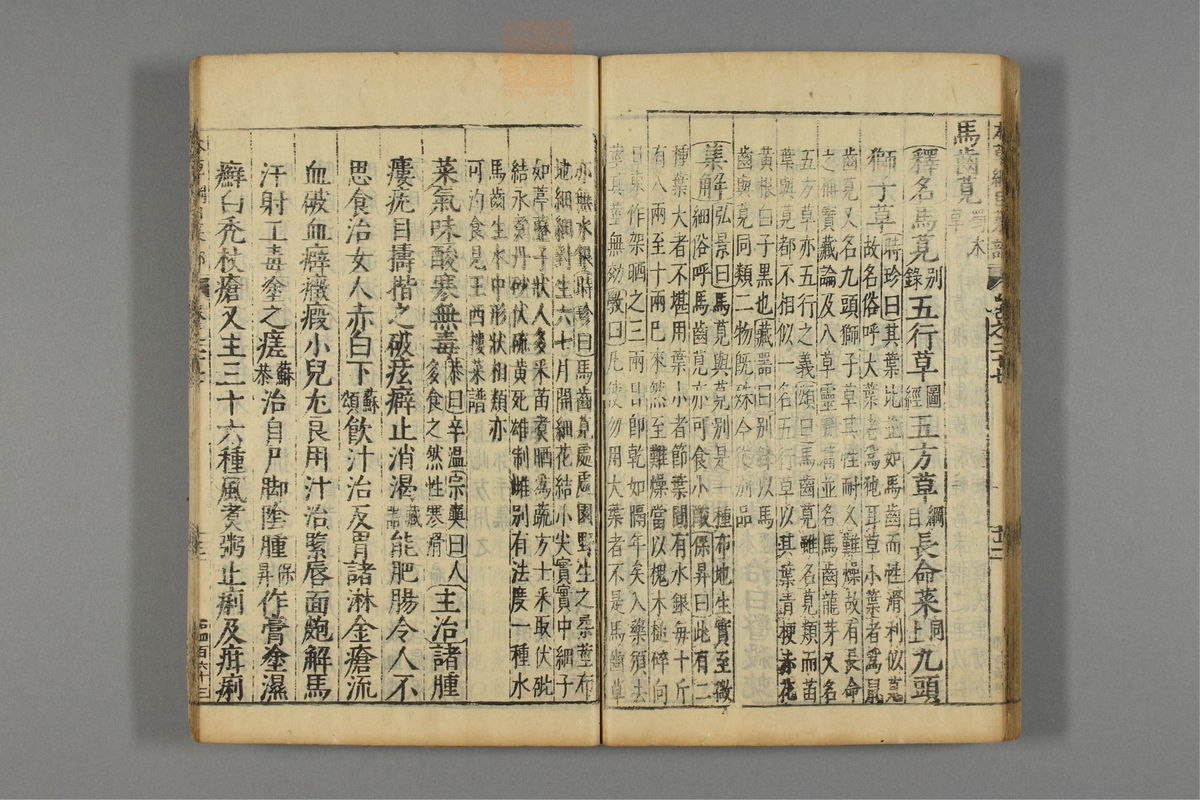 馬齒莧 蜀本草
釋名馬莧別錄五行草圖經五方草綱目長命菜仝上九頭
獅子草時珍曰其葉比並如馬齒而性滑利似莧故名俗呼大葉者為㹠耳草小葉者為鼠
齒莧又名九頭獅子草其性耐久難燥故有長命之稱寶藏論及八草靈變篇並名馬齒龍芽又名
五方草亦五行之義頌曰馬齒莧雖名莧類而苗葉與莧都不相似一名五行草以其葉青梗赤花
黃根白子黑也藏器曰別錄以馬齒與莧同類二物既殊今從別品
集解弘景曰馬莧與莧別是一種布地生實至微細俗呼馬齒莧亦可食小酸保昇曰此有二
種葉大者不堪用葉小者節葉間有水銀每十斤有八兩至十兩已來然至難燥當以槐木槌碎向
日東作架晒之三兩日即乾如隔年矣入藥須去莖其莖無効斆曰凡使勿用大葉者不是馬齒草
亦無水銀時珍曰馬齒莧處處園野生之柔莖布地細細對生六七月開細花結小尖實實中細子
如葶藶子狀人多采苗煑晒為蔬方士采取伏砒結水銀煑丹砂伏硫黃死雄制雌別有法度一種水
馬齒生水中形狀相類亦可灼食見王西樓菜譜
菜氣味酸寒無毒恭曰辛溫宗奭曰人多食之然性寒滑主治諸腫
瘻疣目擣揩之破痃癖止消渴藏器能肥腸令人不
思食治女人赤白下蘇頌飲汁治反胃諸淋金瘡流
血破血癖癥瘕小兒尤良用汁治緊唇面皰解馬
汗射工毒塗之瘥蘇恭治自尸脚陰腫保昇作膏塗濕
癬白禿杖瘡又主三十六種風煑粥止痢及疳痢